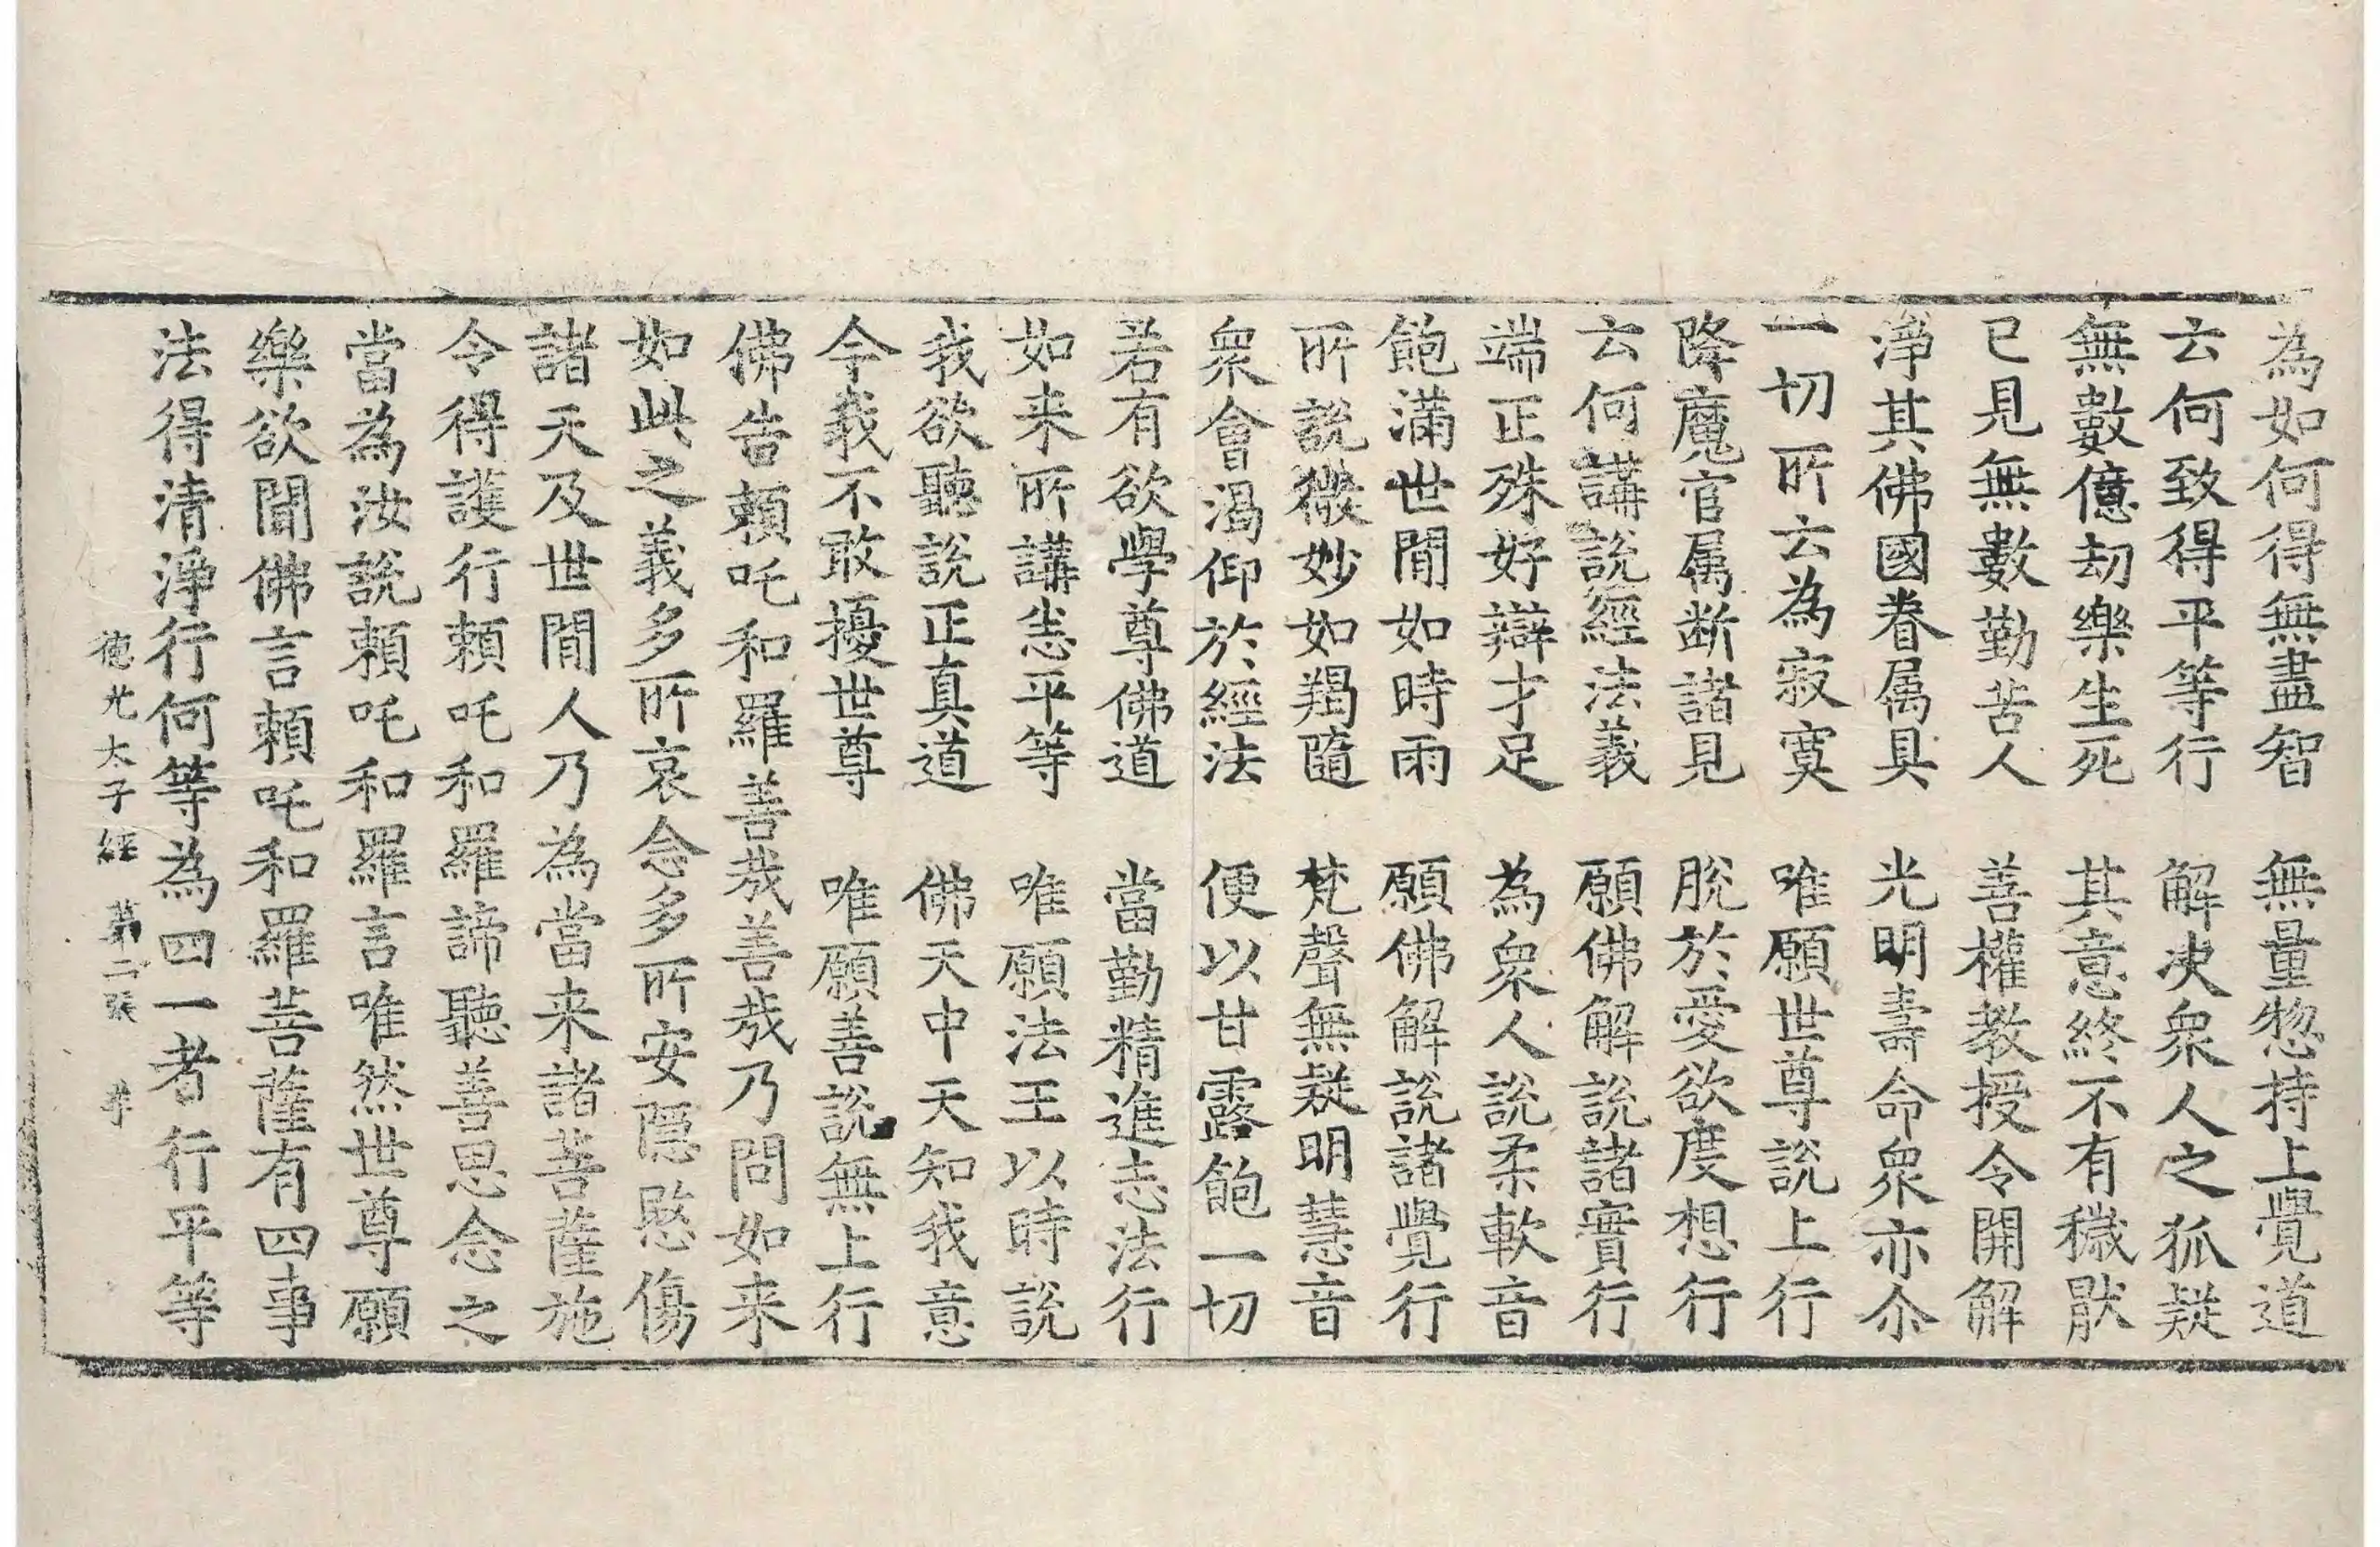 為如何得無盡智　無量惣持上覺道
云何致得平等行　解决衆人之狐疑
無數億劫樂生死　其意終不有穢猒
已見無數勤苦人　善權教授令開解
淨其佛國眷属具　光明壽命衆亦尒
一切所云為寂寞　唯願世尊說上行
降魔官属断諸見　脫於愛欲度想行
云何講說經法義　願佛解說諸實行
端正殊好辯才足　為衆人說柔軟音
飽滿世閒如時雨　願佛解說諸覺行
所說微妙如羯隨　梵聲無疑明慧音
衆會渴仰於經法　便以甘露飽一切
若有欲學尊佛道　當勤精進志法行
如来所講悉平等　唯願法王以時說
我欲聽說正真道　佛天中天知我意
今我不敢擾世尊　唯願善說無上行
佛告頼吒和羅善哉善哉乃問如来
如此之義多所哀念多所安隠愍傷
諸天及世閒人乃為當来諸菩薩施
令得護行頼吒和羅諦聽善思念之
當為汝說頼吒和羅言唯然世尊願
樂欲聞佛言頼吒和羅菩薩有四事
法得清淨行何等為四一者行平等
德光太子經　第二張